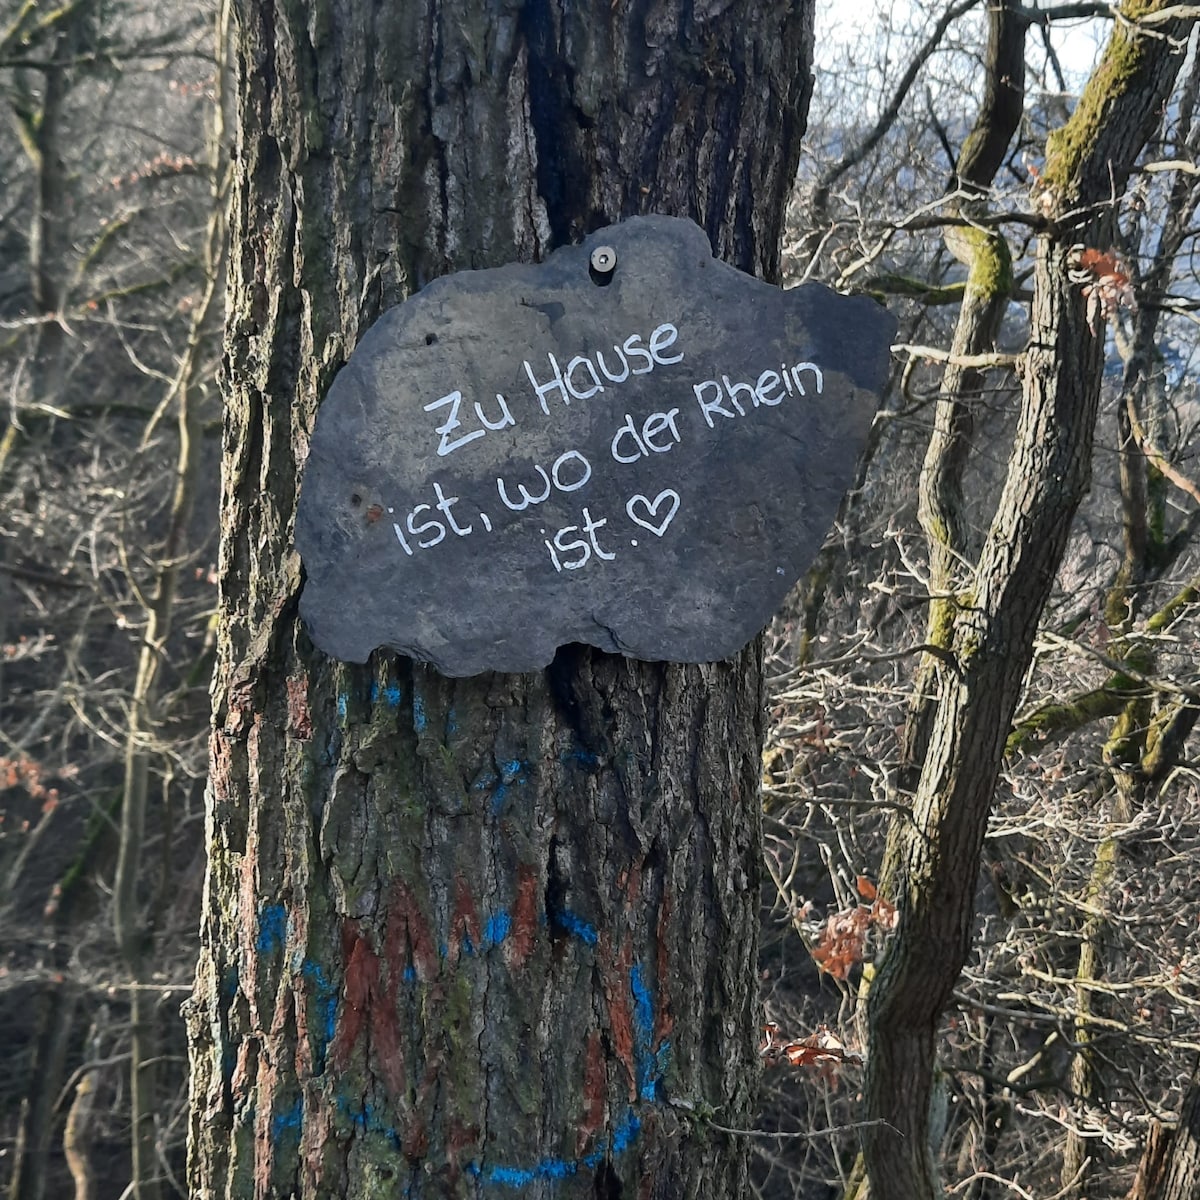 Zu Hause
ist, wo der Rhein
ist.♡